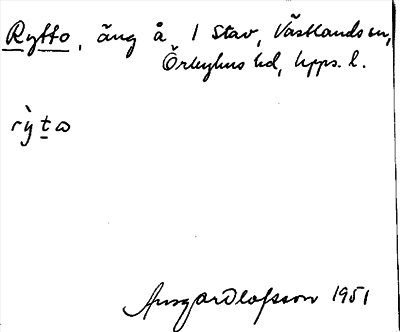 Rytto, äng å 1 Stav, Västlands sn,
Örbyhus hd, Upps. l.
rỳtω
Ansgar Olofsson 1951